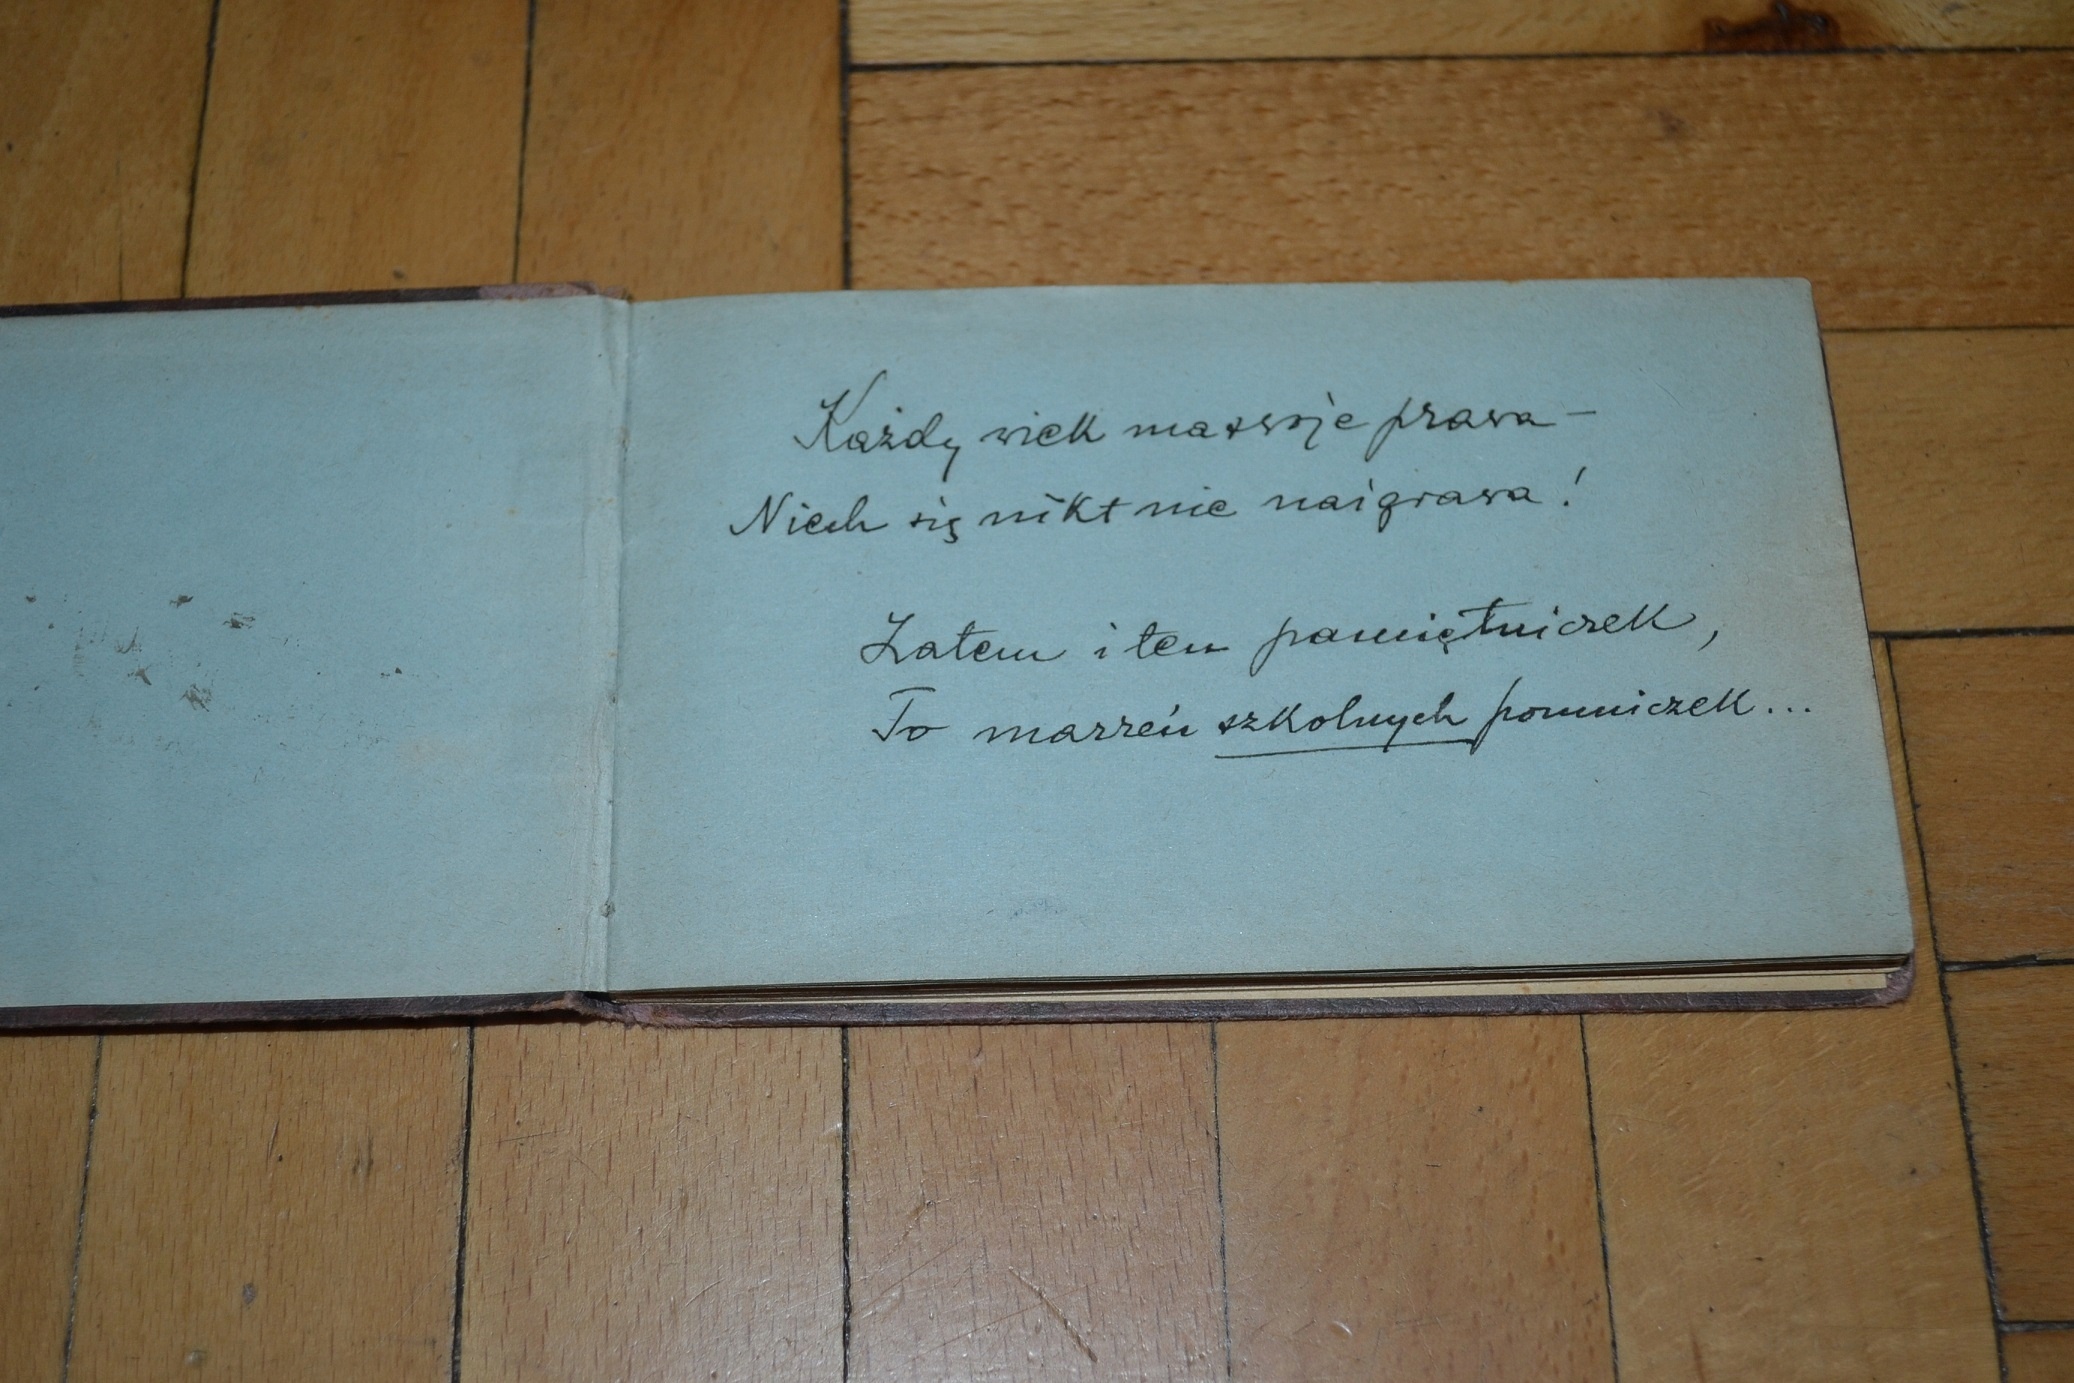 Każdy wiek ma swoje prawa –
Niech się nikt nie naigrawa!
Zatem i ten pamiętniczek,
To marzeń szkolnych pomniczek...